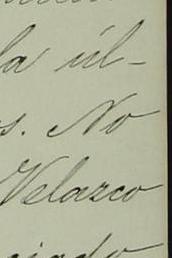 la úl-
s. No
Velazco